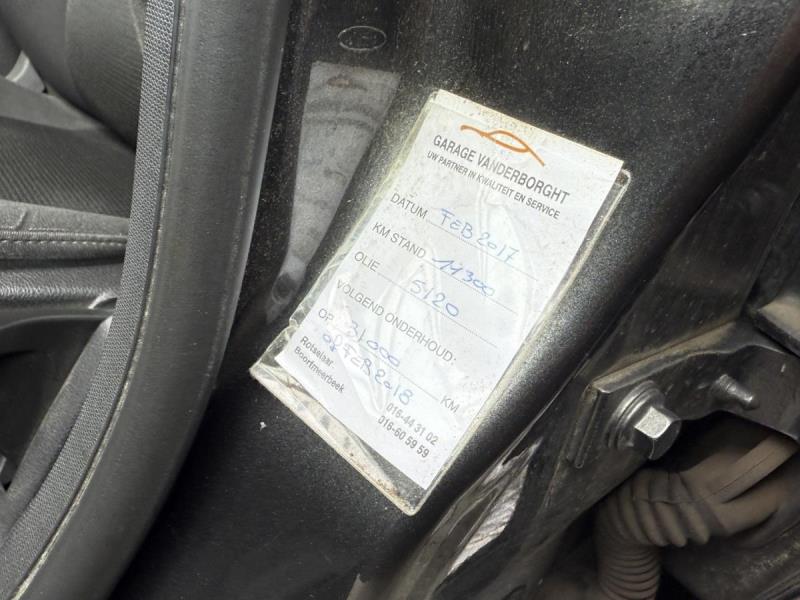 GARAGE VANDERBORGHT
UW PARTNER IN KWALITEIT EN SERVICE
DATUM FEB 2017
KM STAND 11300
OLIE 5/20
VOLGEND ONDERHOUD:
OP 31,000 KM
OF FEB 2018
Rotselaar 016-44 31 02
Boortmeerbeek 016-60 59 59